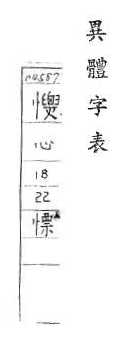 異體字表
04587
心
18
22
慓